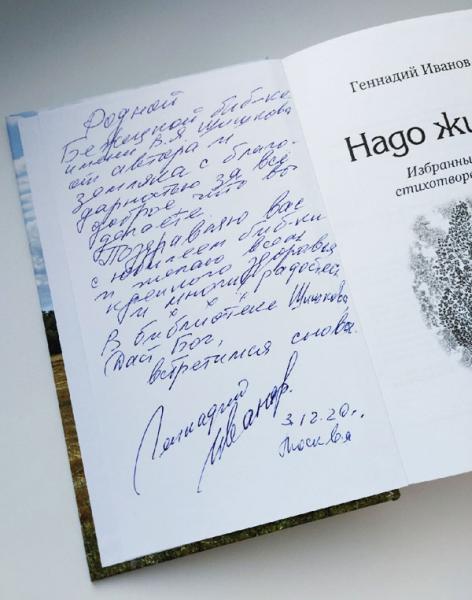 Родной
Бежецкой биб-ке
имени В.Я. Шишкова
от автора и
земляка с благо-
дарностью за всё
доброе что вы
делаете.
Поздравляю вас
с юбилеем биб-ки
и желаю всем
крепкого здоровья
и многих радостей
х х х
В библиотеке Шишкова
Даст Бог,
встретимся снова.
Геннадий
Иванов.
3.12.20г.
Москва
Геннадий Иванов
Надо жи
Избранны
стихотворе